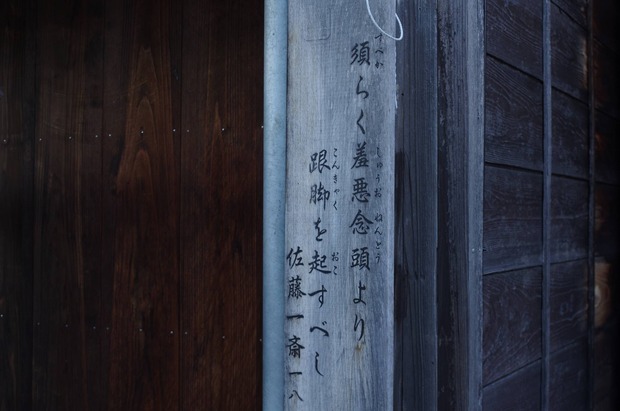 須らく羞悪念頭より
すべか
しゅうお
ねんとう
跟脚を起すべし
こんきゃく
おこ
佐藤一斎一八